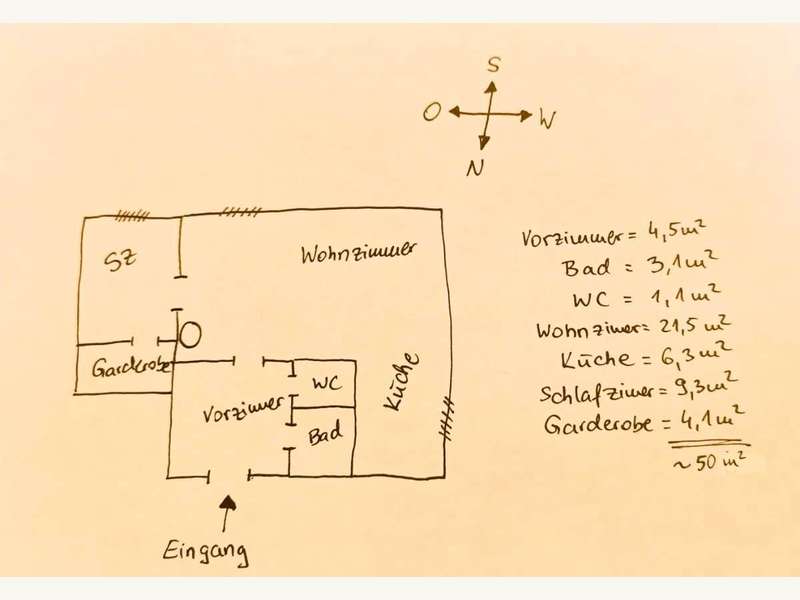 S
O
W
N
SZ
Wohnzimmer
Garderobe
O
WC
Vorzimer
Bad
Küche
Eingang
Vorzimmer = 4,5m²
Bad = 3,1m²
WC = 1,1m²
Wohnzimer = 21,5 m²
Küche = 6,3m²
Schlafzimer = 9,3m²
Garderobe = 4,1m²
~ 50 m²